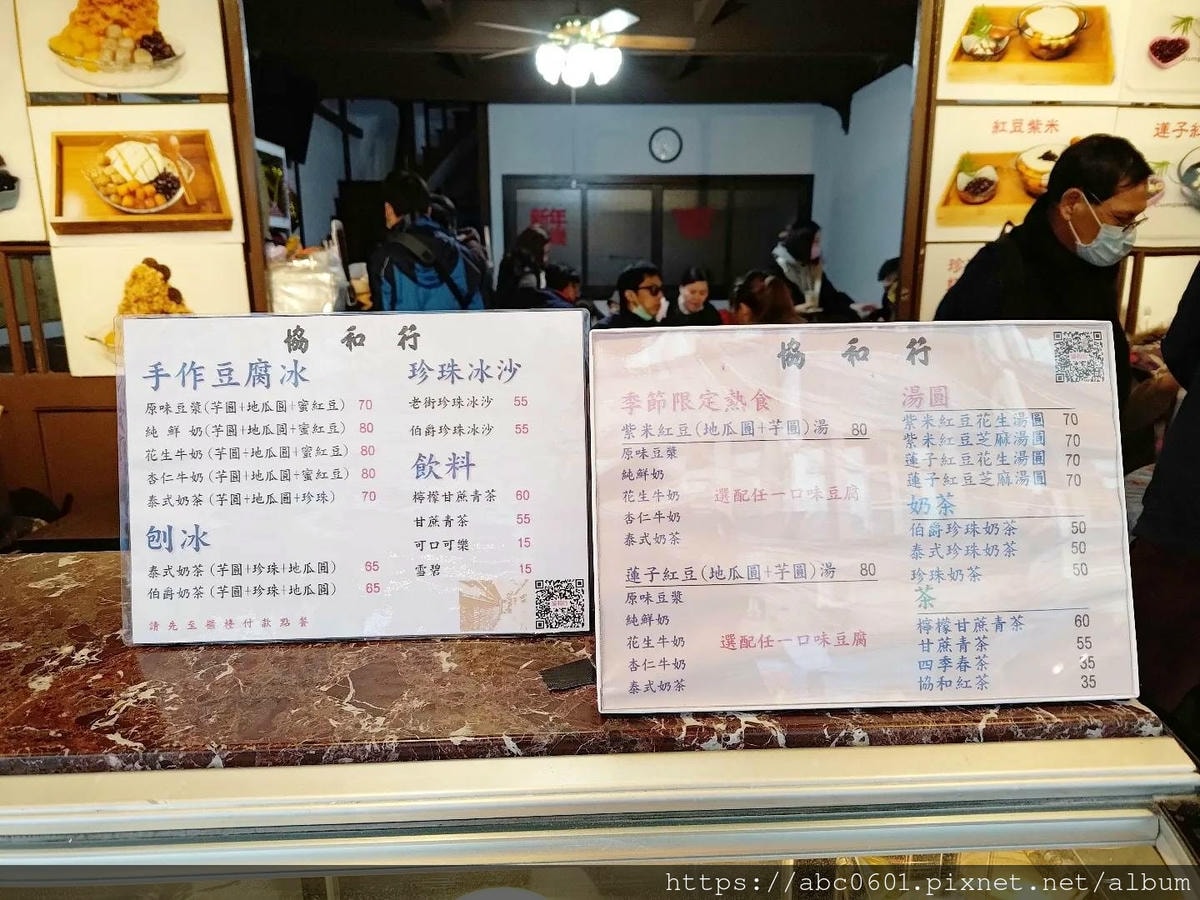 紅豆紫米
蓮子紅
新年
協和行
手作豆腐冰
原味豆漿(芋圓+地瓜圓+蜜紅豆) 70
純鮮奶(芋圓+地瓜圓+蜜紅豆) 80
花生牛奶(芋圓+地瓜圓+蜜紅豆) 80
杏仁牛奶(芋圓+地瓜圓+蜜紅豆) 80
泰式奶茶(芋圓+地瓜圓+珍珠) 70
刨冰
泰式奶茶(芋圓+珍珠+地瓜圓) 65
伯爵奶茶(芋圓+珍珠+地瓜圓) 65
請先至櫃檯付款點餐
珍珠冰沙
老街珍珠冰沙 55
伯爵珍珠冰沙 55
飲料
檸檬甘蔗青茶 60
甘蔗青茶 55
可口可樂 15
雪碧 15
協和行
季節限定熱食
紫米紅豆(地瓜圓+芋圓)湯 80
原味豆漿
純鮮奶
花生牛奶 選配任一口味豆腐
杏仁牛奶
泰式奶茶
蓮子紅豆(地瓜圓+芋圓)湯 80
原味豆漿
純鮮奶
花生牛奶 選配任一口味豆腐
杏仁牛奶
泰式奶茶
湯圓
紫米紅豆花生湯圓 70
紫米紅豆芝麻湯圓 70
蓮子紅豆花生湯圓 70
蓮子紅豆芝麻湯圓 70
奶茶
伯爵珍珠奶茶 50
泰式珍珠奶茶 50
珍珠奶茶 50
茶
檸檬甘蔗青茶 60
甘蔗青茶 55
四季春茶 35
協和紅茶 35
https://abc0601.pixnet.net/album